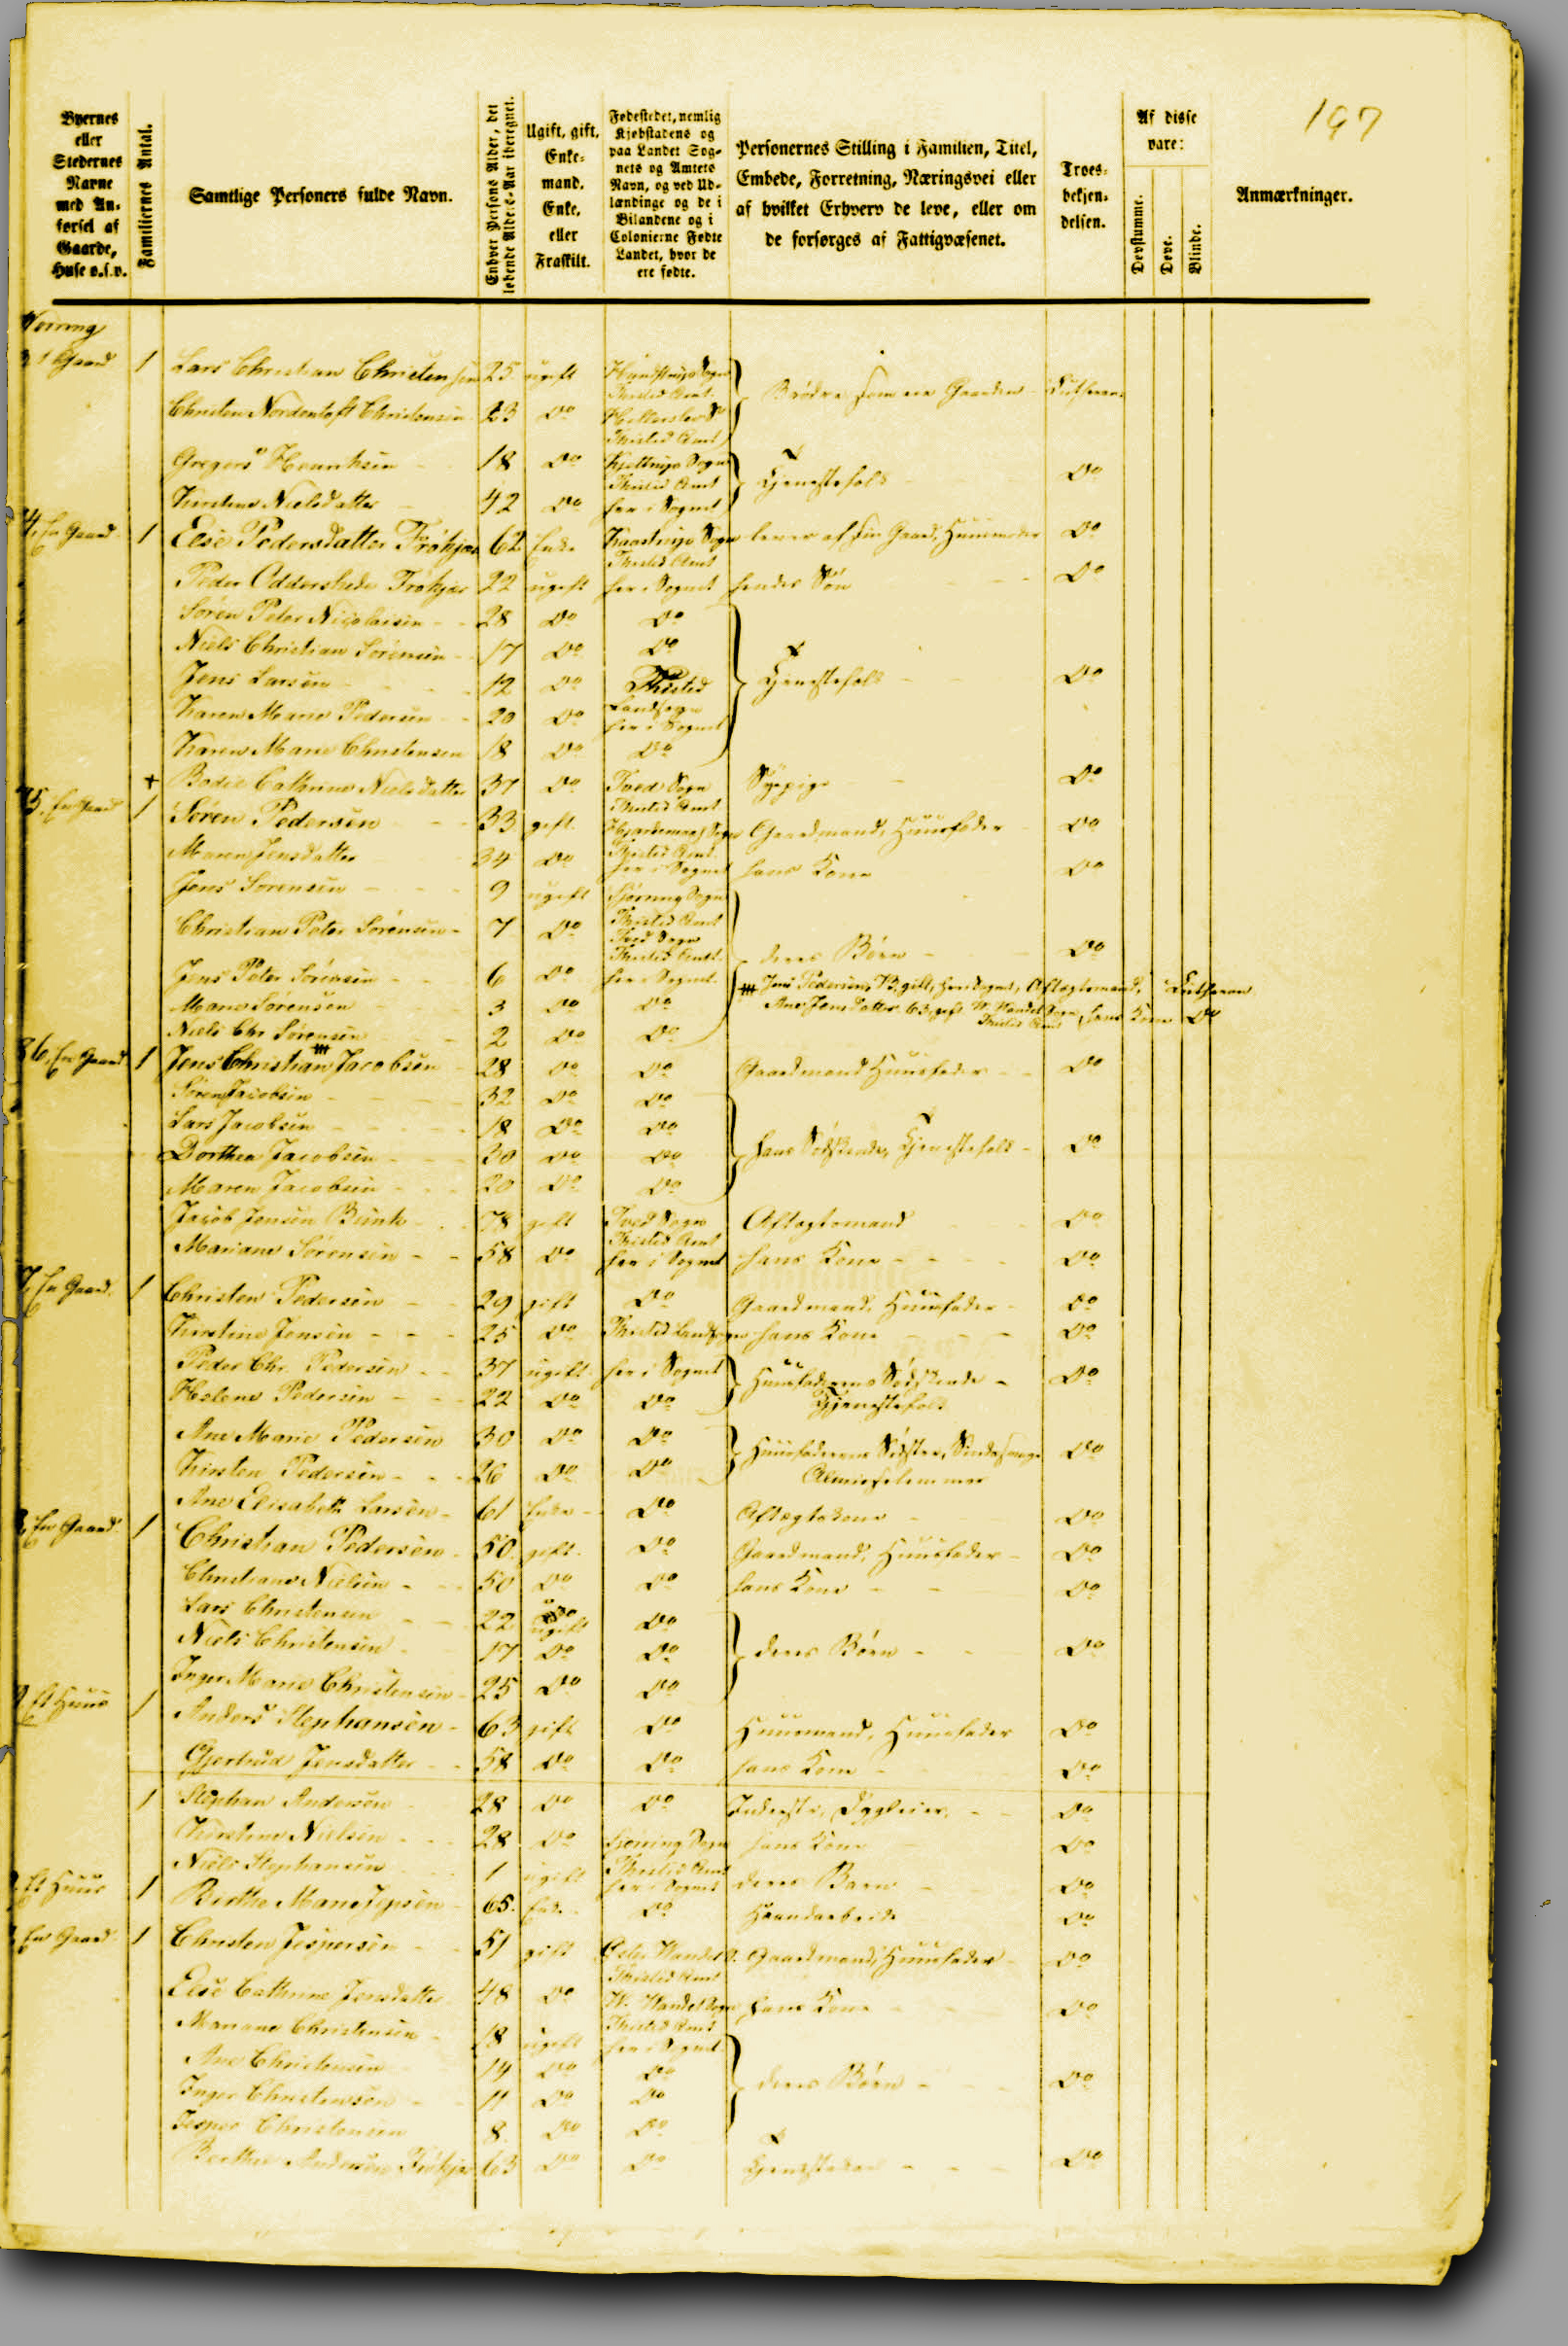 197
Byernes eller Stedernes Navne med Anførsel af Gaarde, Huse o.s.v.
Familiernes Antal.
Samtlige Personers fulde Navn.
Enhver Persons Alder, det løbende Alders-Aar iberegnet.
Ugift, gift, Enkemand, Enke, eller Fraskilt.
Fødestedet, nemlig Kjøbstadens og paa Landet Sognets og Amtets Navn, og ved Udlændinge og de i Bilandene og i Colonierne Fødte Landet, hvor de ere fødte.
Personernes Stilling i Familien, Titel, Embede, Forretning, Næringsvei eller af hvilket Erhverv de leve, eller om de forsørges af Fattigvæsenet.
Troesbekjendelsen.
Af disse vare:
Døvstumme.
Døve.
Blinde.
Anmærkninger.
Gaard 1 Lars Christian Christensen 25 ugift Sogn Thisted Amt Brødre som Gaarden Lutheran
Christen Nordentoft Christensen 23 Do Thisted Amt
Gregers Henriksen 18 Do Kjettrup Sogn Thisted Amt Tjenestefolk Do
Kirstine Nielsdatter 42 Do her i Sognet
4, En Gaard 1 Else Pedersdatter Frøkjær 62 Enke Kaastrup Sogn Thisted Amt lever af sin Gaard, Huusmoder Do
Peder Oddershede Frøkjær 22 ugift her i Sognet hendes Søn Do
Søren Peter Nicolaisen 28 Do Do
Niels Christian Sørensen 17 Do Do
Jens Larsen 12 Do Thisted Landsogn Tjenestefolk Do
Karen Marie Pedersen 20 Do her i Sognet
Karen Marie Christensen 18 Do Do
+ Bodil Cathrine Nielsdatter 37 Do Tved Sogn Thisted Amt Sypige Do
5, En Gaard 1 Søren Pedersen 33 gift Hjardemaal Sogn Thisted Amt Gaardmand, Huusfader Do
Maren Jensdatter 34 Do her i Sognet hans Kone Do
Jens Sørensen 9 ugift Sjørring Sogn Thisted Amt
Christian Peter Sørensen 7 Do Tved Sogn Thisted Amt deres Børn Do
Jens Peter Sørensen 6 Do her i Sognet
Jens Pedersen, 73, gift, her i Sognet, Aftægtsmand, Lutheran
Marie Sørensen 3 Do Do
Ane Jensdatter 63, gift W. Wandet Sogn Thisted Amt, hans Kone Do
Niels Chr Sørensen 2 Do Do
6, En Gaard 1 Jens Christian Jacobsen 28 Do Do Gaardmand Huusfader Do
Søren Jacobsen 32 Do Do
Lars Jacobsen 18 Do Do
Dorthea Jacobsen 30 Do Do hans Sødskende, Tjenestefolk Do
Maren Jacobsen 20 Do Do
Jacob Jensen Bunk 78 gift Tved Sogn Thisted Amt Aftægtsmand Do
Mariane Sørensen 58 Do her i Sognet hans Kone Do
7, En Gaard 1 Christen Pedersen 29 gift Do Gaardmand, Huusfader Do
Kirstine Jensen 25 Do Thisted Landsogn hans Kone Do
Peder Chr. Pedersen 37 ugift her i Sognet Huusfaderens Sødskende Tjenestefolk Do
Helene Pedersen 22 Do Do
Ane Marie Pedersen 30 Do Do Huusfaderens Søster, Almisselemmer Do
Kirsten Pedersen 26 Do Do
Ane Elisabeth Larsen 61 Enke Do Aftægtskone Do
En Gaard 1 Christian Pedersen 50 gift Do Gaardmand, Huusfader Do
Christiane Nielsen 50 Do Do hans Kone Do
Lars Christensen 22 ugift Do
Niels Christensen 17 Do Do deres Børn Do
Inger Marie Christensen 25 Do Do
9, Et Huus 1 Anders Stephansen 63 gift Do Huusmand, Huusfader Do
Gjertrud Jensdatter 58 Do Do hans Kone Do
1 Stephan Andersen 28 Do Do Inderste, Do
Kirstine Nielsen 28 Do Sjørring Sogn Thisted Amt hans Kone Do
Niels Stephansen 1 ugift her i Sognet deres Barn Do
Et Huus 1 Birthe Marie Jepsen 65 Enke Do Haandarbeide Do
En Gaard 1 Christen Jespersen 51 gift Øster Wandet S. Thisted Amt Gaardmand, Huusfader Do
Else Cathrine Jensdatter 48 Do W. Wandet Sogn Thisted Amt hans Kone Do
Mariane Christensen 18 ugift her i Sognet
Ane Christensen 14 Do Do deres Børn Do
Inger Christensen 11 Do Do
Jesper Christensen 8 Do Do
Berthe Andersen Frøkjær 63 Do Do Do